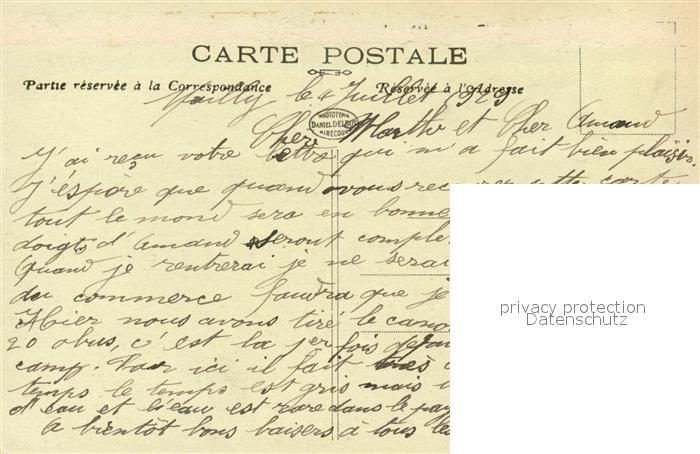 CARTE POSTALE
Partie réservée à la Correspondance
Réservée à l'Adresse
Mailly le 4 Juillet 1929
PHOTOTYPIE
DANIEL DELBOY
MIRECOURT
Cher Marthe et Cher Amand
J'ai reçu votre lettre qui m'a fait bien plaisir.
J'éspore que quand vous recevrez cette carte
tout le mond sera en bonne
doigts d'Amand seront comple
Quand je rentrerai je ne serai
du commerce faudra que je
Hier nous avons tiré le cano
20 obus, c'est la 1er fois depui
camp. Par ici il fait très
temps le temps est gris mais
d'eau et l'eau est rare dans le pay
A bientôt bons baisers à tous les
privacy protection
Datenschutz